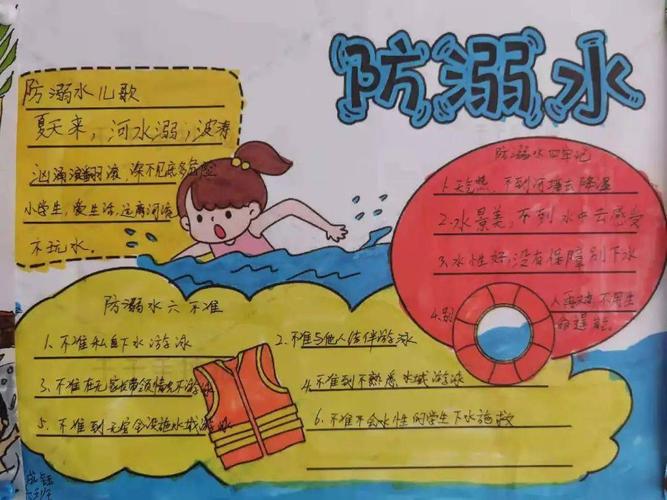 防溺水
防溺水儿歌
夏天来，河水溺，波涛
汹涌滚翻滚，深不见底多危险
小学生，爱生活，远离河流
不玩水。
防溺水四牢记
1.天气热，不到河塘去降温
2.水景美，不到水中去感受
3.水性好，没有保障别下水
4.别
人再 不用生
命逞能。
防溺水六不准
1.不准私自下水游泳
2.不准与他人结伴游泳
3.不准在无家长带领情况下游泳
4.不准到不熟悉水域游泳
5.不准到无安全设施水域游泳
6.不准不会水性的学生下水施救